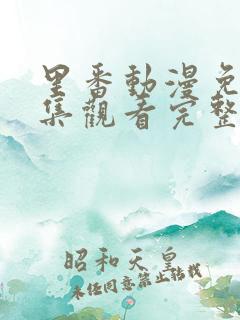 里番動漫免
集觀看完整
昭和天皇
未任同意禁止轉載